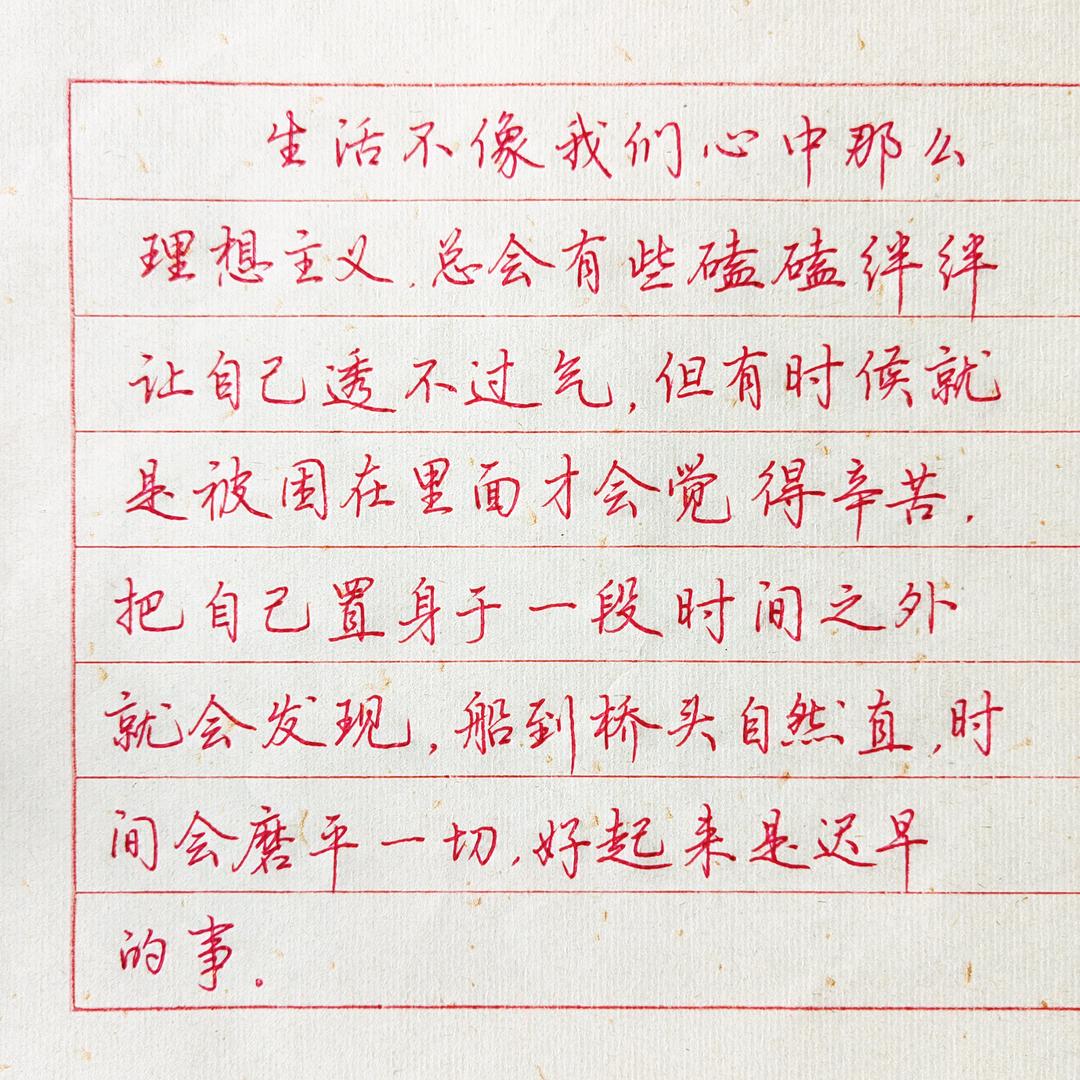 生活不像我们心中那么
理想主义.总会有些磕磕绊绊
让自己透不过气,但有时候就
是被困在里面才会觉得辛苦.
把自己置身于一段时间之外
就会发现,船到桥头自然直,时
间会磨平一切,好起来是迟早
的事.